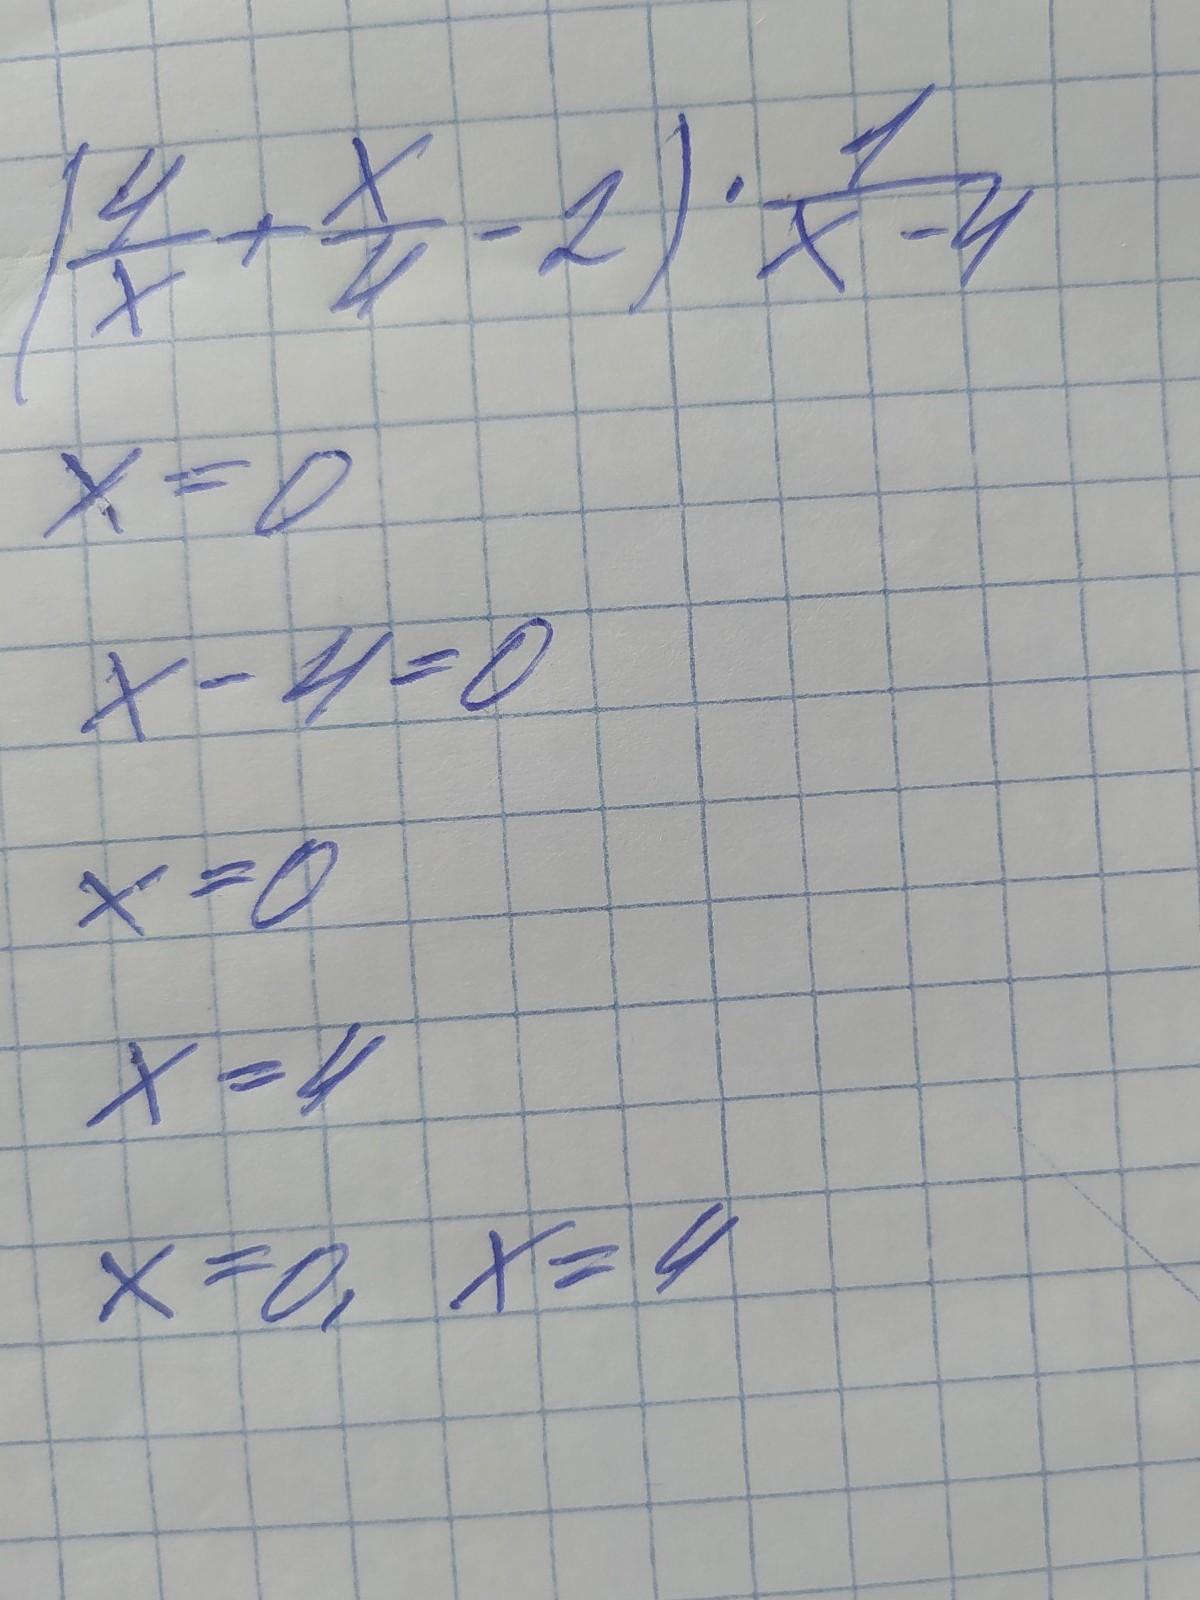 (4/x + x/4 - 2) · 1/(x - 4)
x = 0
x - 4 = 0
x = 0
x = 4
x = 0, x = 4